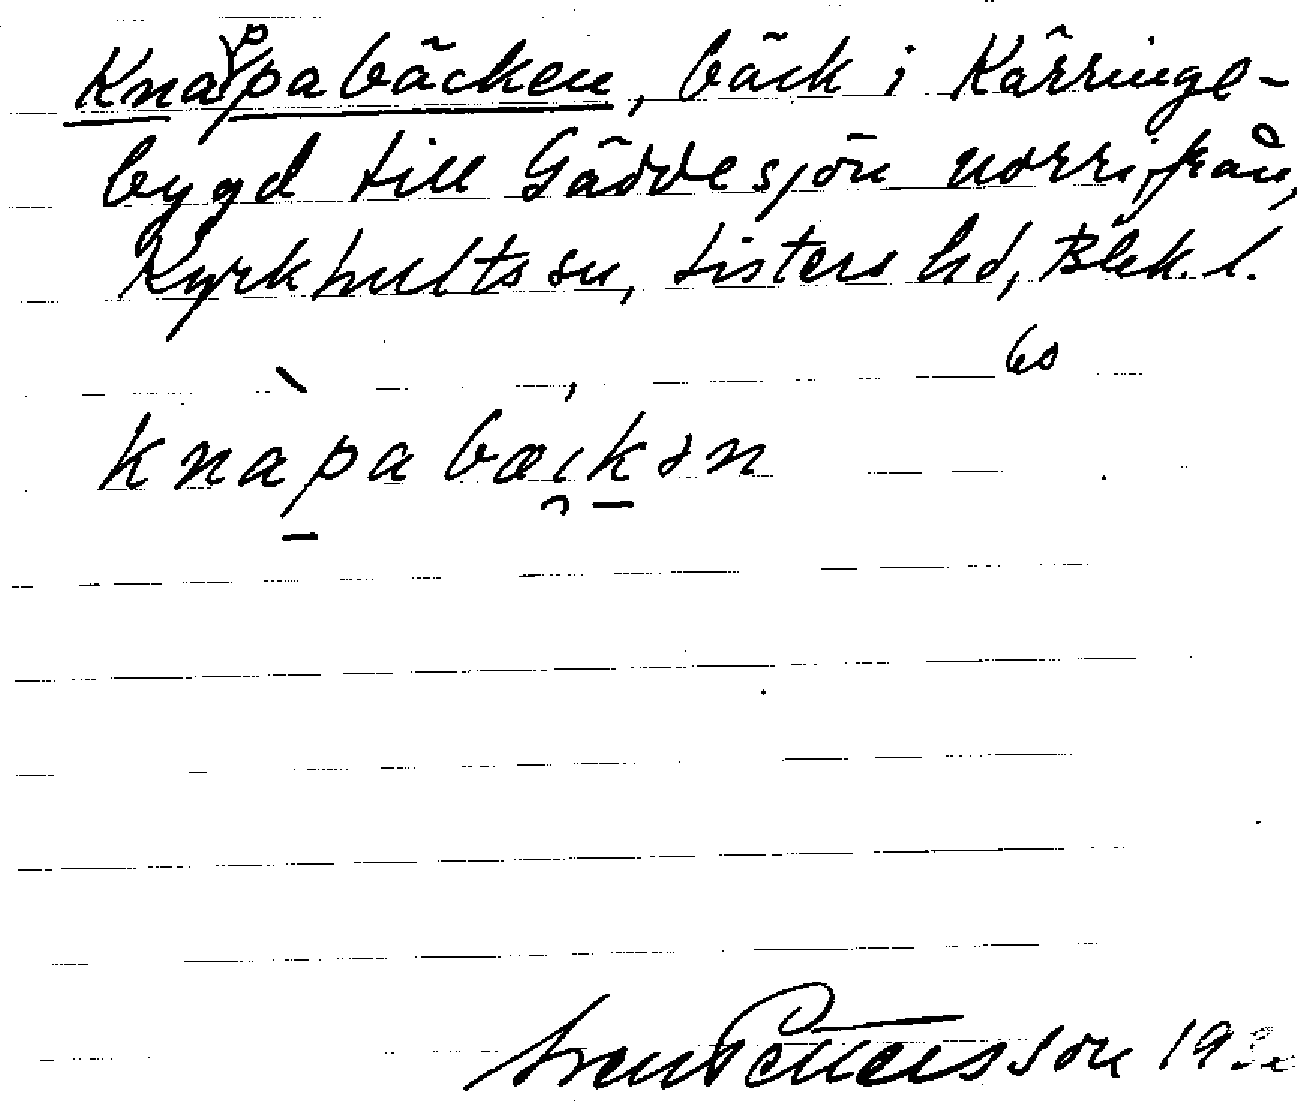 Knappabäcken, bäck i Kärringe-
bygd till Gäddesjön norrifrån,
Kyrkhults sn, Listers hd, Blek. l.
knàpabækən
Sven Pettersson 19